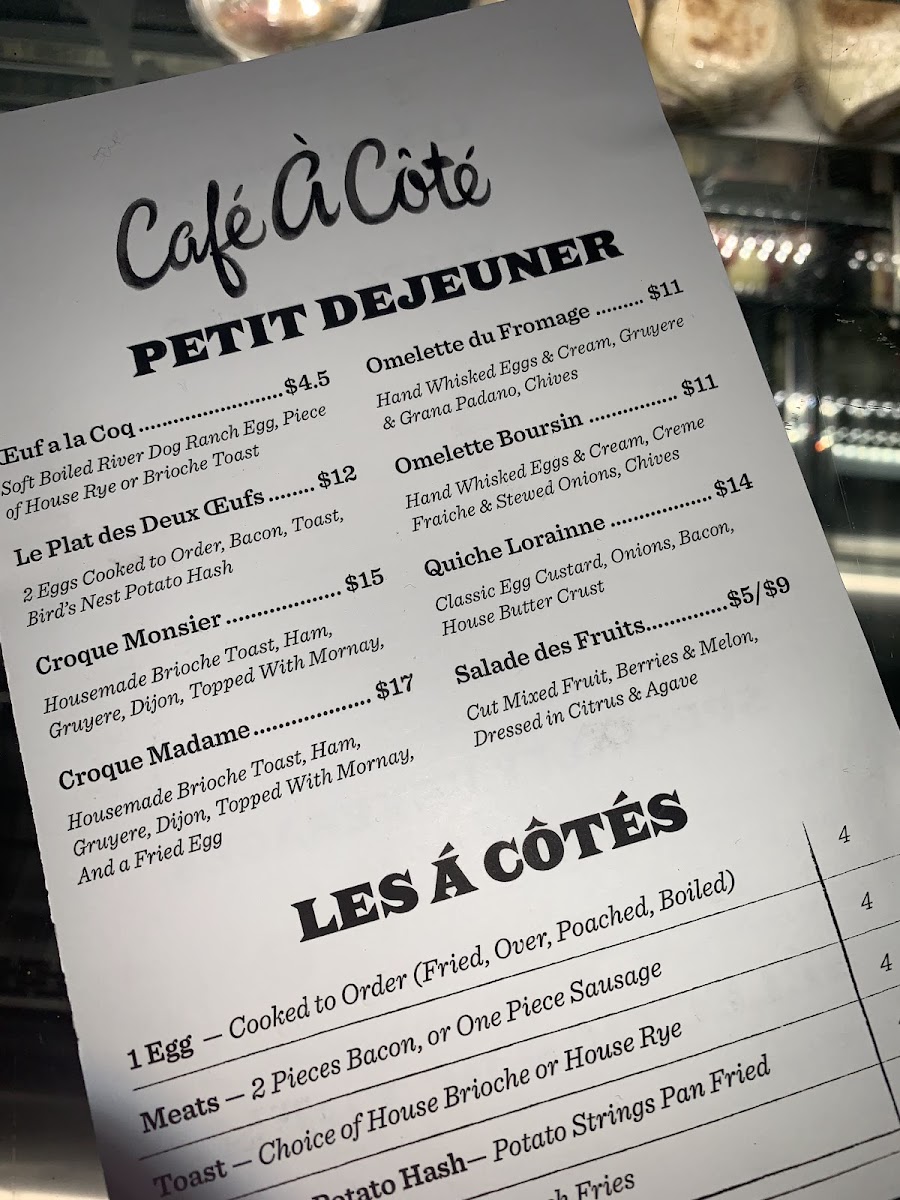 Café À Côté
PETIT DEJEUNER
Œuf a la Coq ........................ $4.5
Soft Boiled River Dog Ranch Egg, Piece
of House Rye or Brioche Toast
Le Plat des Deux Œufs ........ $12
2 Eggs Cooked to Order, Bacon, Toast,
Bird's Nest Potato Hash
Croque Monsier ................... $15
Housemade Brioche Toast, Ham,
Gruyere, Dijon, Topped With Mornay,
Croque Madame ................... $17
Housemade Brioche Toast, Ham,
Gruyere, Dijon, Topped With Mornay,
And a Fried Egg
Omelette du Fromage ......... $11
Hand Whisked Eggs & Cream, Gruyere
& Grana Padano, Chives
Omelette Boursin ................ $11
Hand Whisked Eggs & Cream, Creme
Fraiche & Stewed Onions, Chives
Quiche Lorainne .................. $14
Classic Egg Custard, Onions, Bacon,
House Butter Crust
Salade des Fruits.............. $5/$9
Cut Mixed Fruit, Berries & Melon,
Dressed in Citrus & Agave
LES Á CÔTÉS
1 Egg — Cooked to Order (Fried, Over, Poached, Boiled) 4
Meats — 2 Pieces Bacon, or One Piece Sausage 4
Toast — Choice of House Brioche or House Rye 4
Potato Hash — Potato Strings Pan Fried
Fries